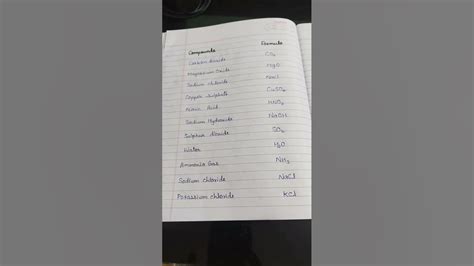 Compounds Formula
Carbon dioxide CO2
Magnesium Oxide MgO
Sodium chloride NaCl
Copper Sulphate CuSO4
Nitric Acid HNO3
Sodium Hydroxide NaOH
Sulphur dioxide SO2
Water H2O
Ammonia Gas NH3
Sodium chloride NaCl
Potassium chloride KCl